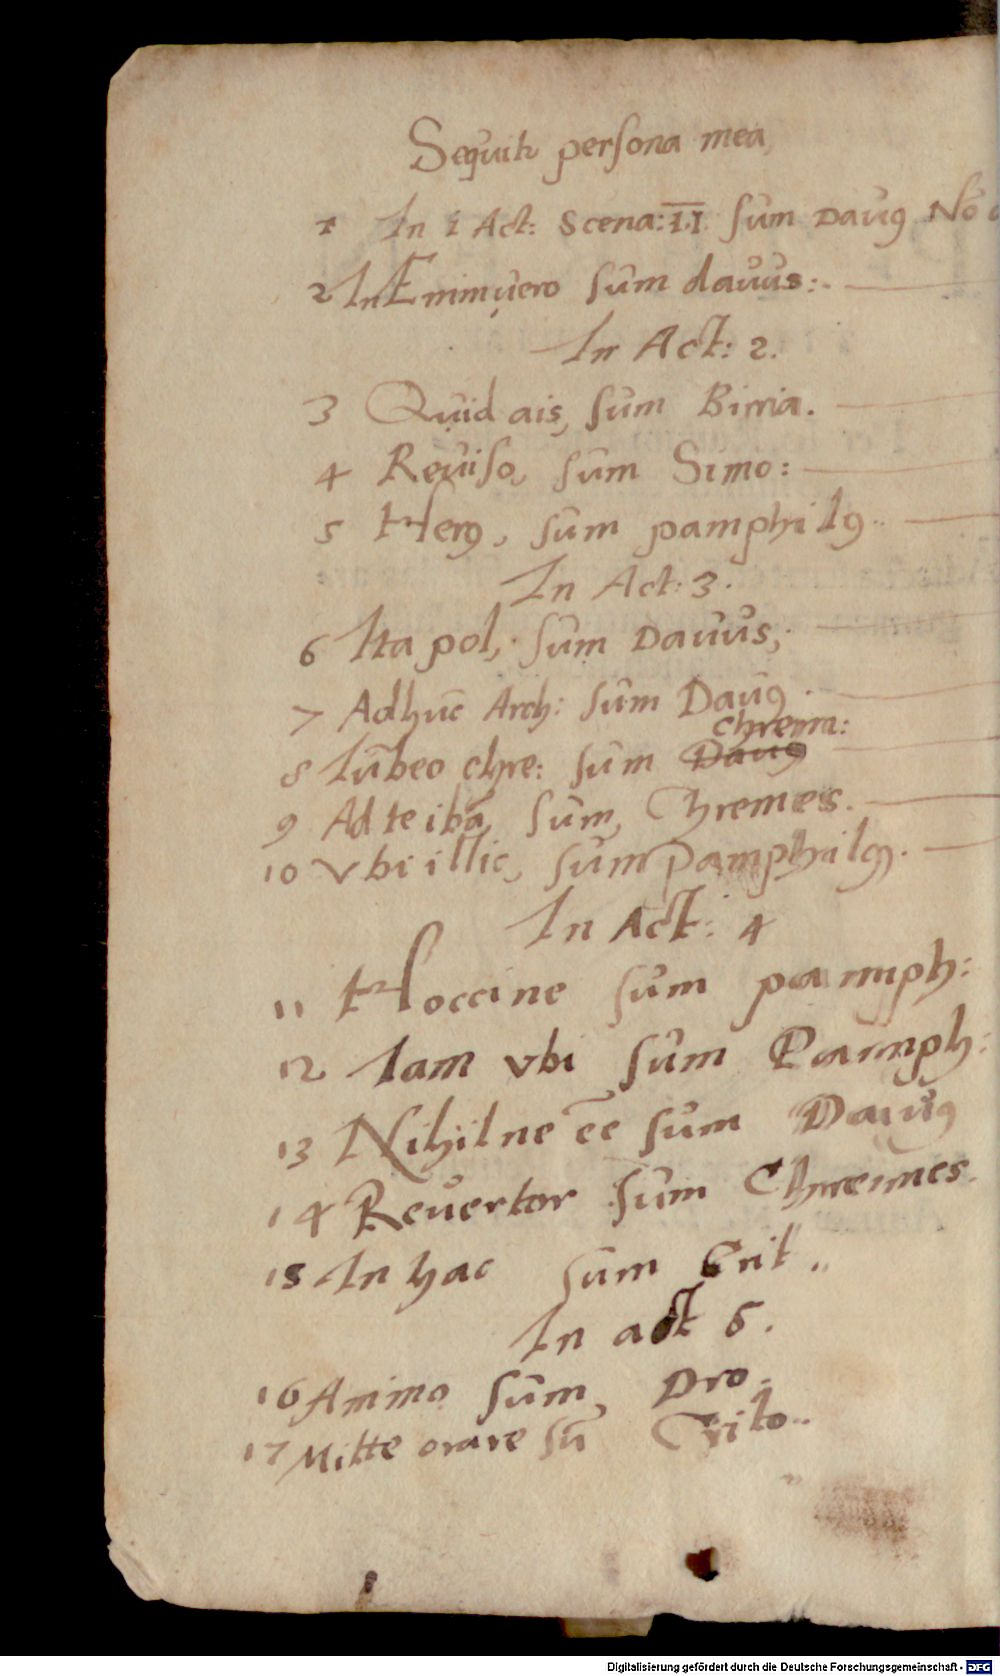 Sequitr persona mea,
1 In 1 Act: Scena: II sum Davꝰ No
2 In Enimuero sum davus:.
In Act: 2.
3 Quid ais, sum Birria.
4 Reuiso, sum Simo:
5 Herꝰ, sum pamphilꝰ..
In Act: 3.
6 Ita pol, sum Davus,.
7 Adhuc̄ Arch: sum Davꝰ.
chrem:
8 Iubeo chre: sum Davꝰ
9 Ad te ibā, sum, Chremes.
10 Vbi illic, sum Pamphilꝰ.
In Act: 4
11 Hoccine sum pamph:
12 Iam vbi sum Pamph:
13 Nihilne ēe sum Davꝰ
14 Reuertor sum Chremes.
15 In hac sum Crit..
In act 5.
16 Animo sum, Dro.
17 Mitte orare sū Crito..
Digitalisierung gefördert durch die Deutsche Forschungsgemeinschaft - DFG